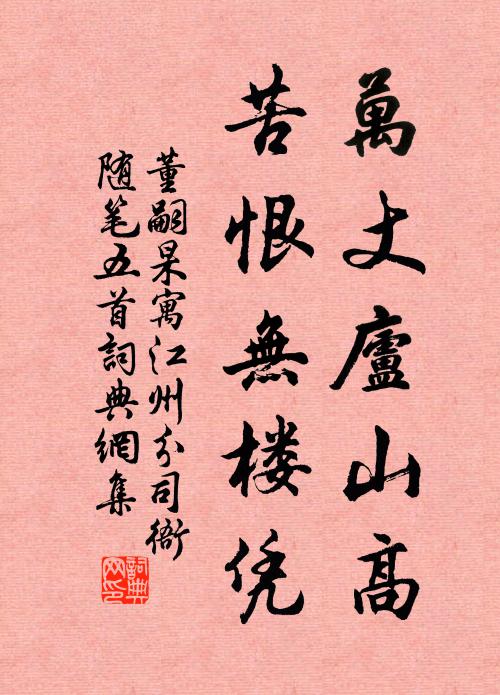 萬丈廬山高
苦恨無楼凭
董嗣杲寓江州分司衙
随笔五首詞典網集
詞典网印